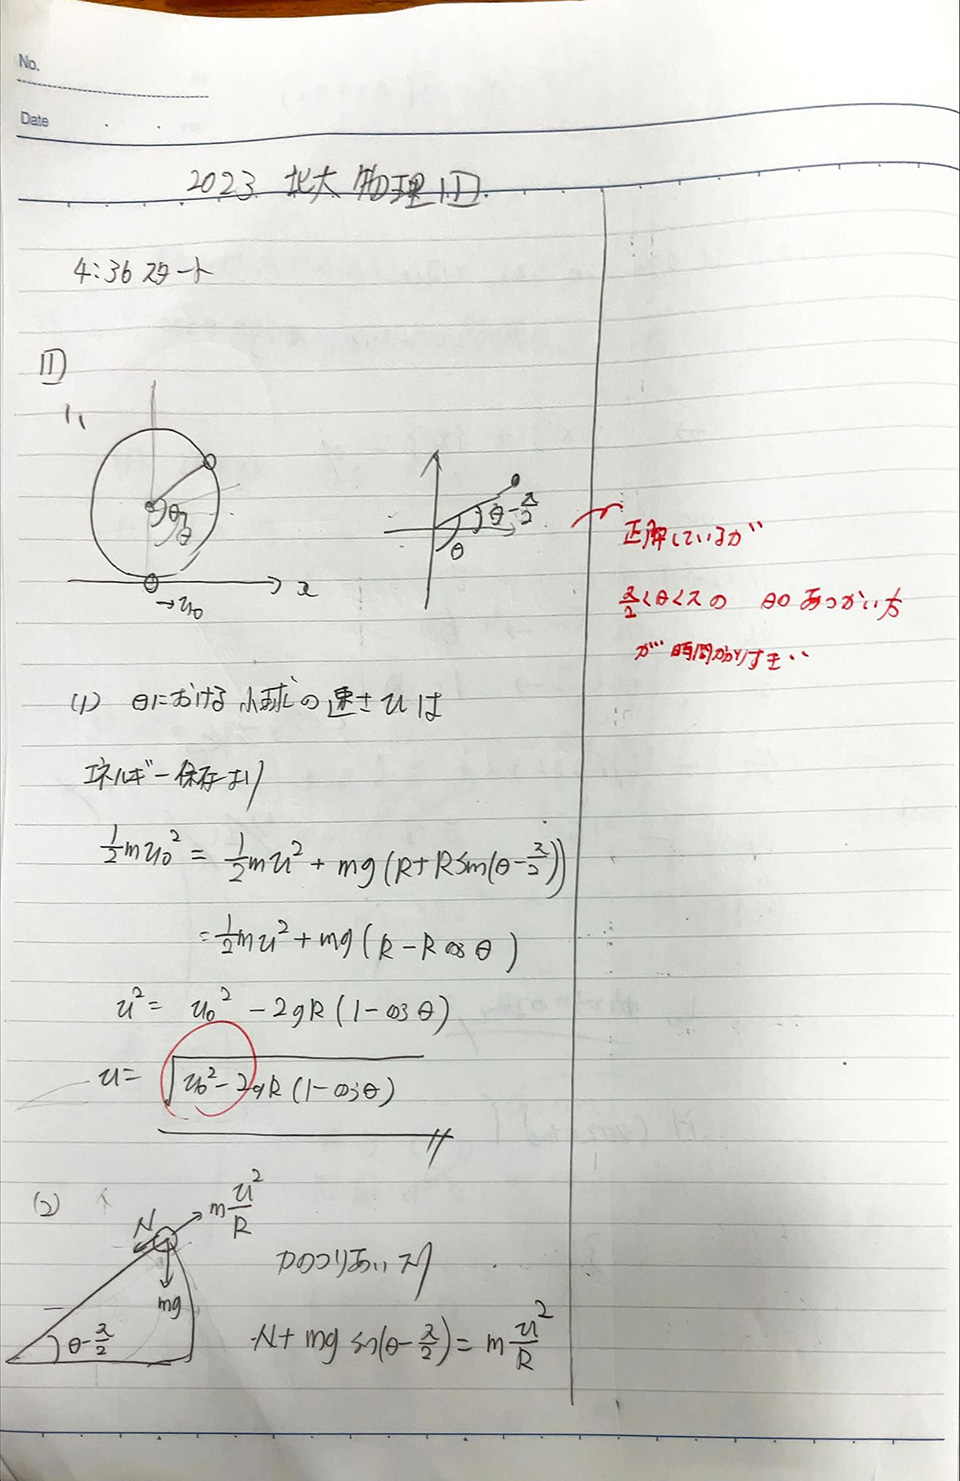 No.
Date
2023 北大 物理 [1]
4:36 スタート
[1]
1,
θ
θ
x
→ u₀
θ-π/2
θ
正解しているが
π/2<θ<πの θの あつかい方
が 時間かかりすぎ..
(1) θにおける 小球の 速さ u は
エネルギー保存より
1/2mu₀² = 1/2mu² + mg(R+Rsin(θ-π/2))
=1/2mu²+mg(R-Rcosθ)
u²= u₀² -2gR(1-cosθ)
u= √(u₀²-2gR(1-cosθ))
(2)
N
m u²/R
mg
θ-π/2
力のつりあいより
N+mg sin(θ-π/2)= m u²/R